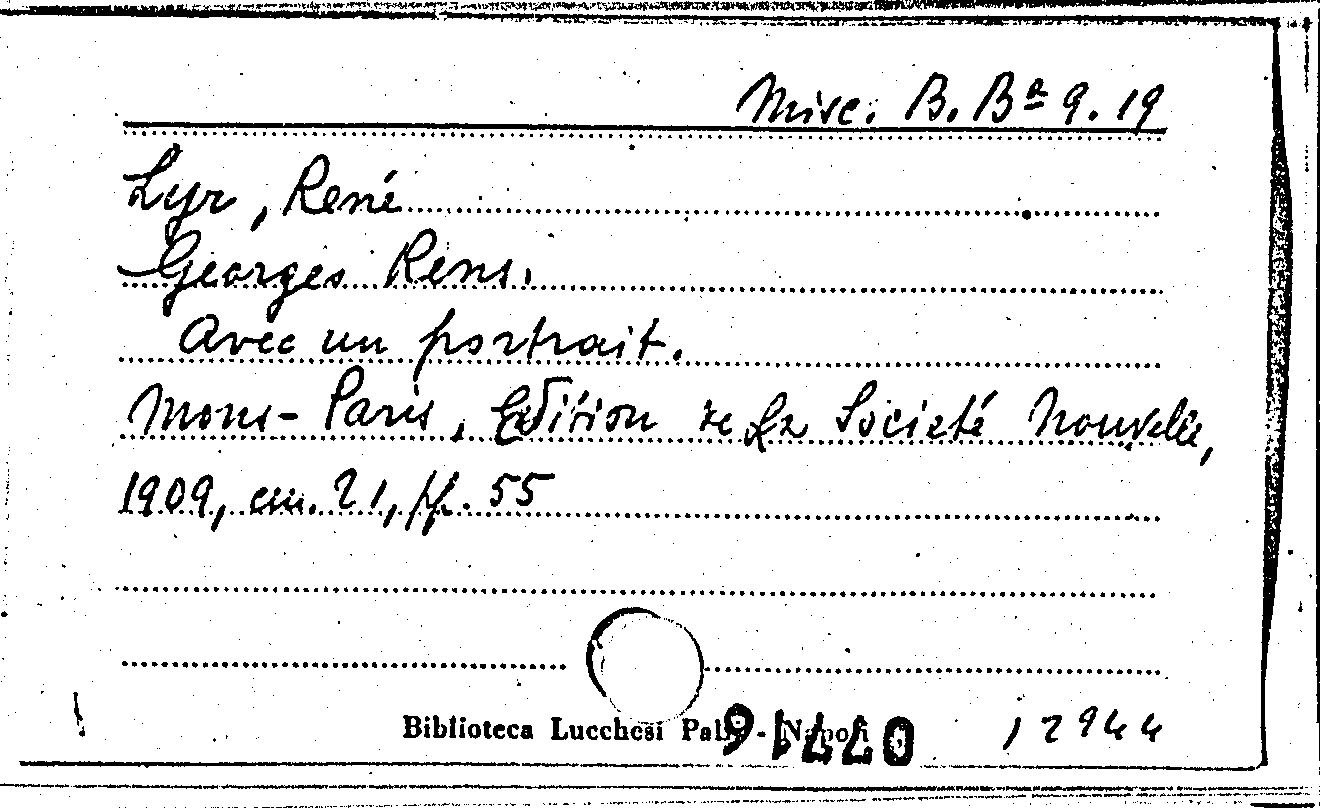 Misc. B. Bª 9. 19
Lyr, René
Georges Rens.
Avec un portrait.
Mons-Paris, Edition de La Société Nouvelle,
1909, cm. 21, pp. 55
Biblioteca Lucchesi Palli - Napoli
12944